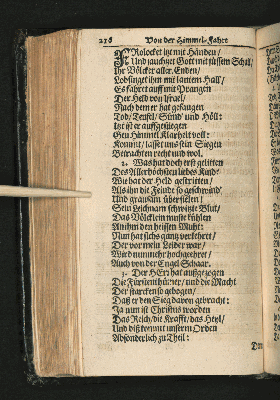 216 Von der Himmel-Fahrt
FRolocket itzt mit Händen/
Und jauchzet Gott mit süssem Schal/
Ihr Völcker aller Enden/
Lobsinget ihm mit lautem Hall/
Es fähret auff mit Prangen
Der Held von Israel/
Nach dem er hat gefangen
Tod/ Teufel/ Sünd' und Höll:
Itzt ist er auffgestiegen
Gen Himmel Klarheit voll:
Kommt/ lasset uns sein Siegen
Betrachten recht und wol.
2. Was hat doch erst gelitten
Des Allerhöchsten liebes Kind/
Wie hat der Held gestritten/
Als ihn die Feinde so geschwind'
Und grausam überfielen!
Sein Leichnam schwitzte Blut/
Das Völcklein muste kühlen
An ihm den heissen Muht:
Nun hat sichs gantz verkehret/
Der vor mein Leider war/
Wird nunmehr hochgeehret/
Auch von der Engel Schaar.
3. Der HErr hat außgezogen
Die Fürstenthümer/ und die Macht
Der starcken so gebogen/
Daß er den Sieg davon gebracht:
Ja nun ist Christus worden
Das Reich/ die Krafft/ das Heyl/
Und diß kommt unserm Orden
Absonderlich zu Theil: